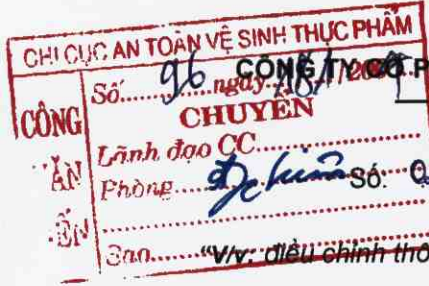 CHI CỤC AN TOÀN VỆ SINH THỰC PHẨM
CÔNG
ĂN
ĐẾN
Số 96 ngày
CÔNG TY CỔ P
CHUYỂN
Lãnh đạo CC
Phòng
Số: 0
Sao
"V/v: điều chỉnh thô